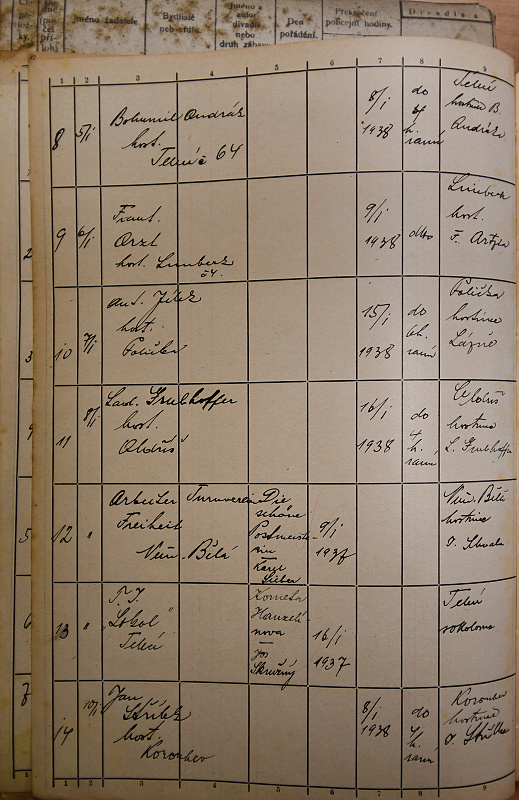 Jméno žadatele.
Bydliště
Jméno a
autor
divadla
nebo
druh zábavy
Den
pořádání.
Překročení
policejní hodiny.
Divadlo
1 2 3 4 5 6 7 8 9
8 5/I Bohumil Andrlík
host.
Telecí č 64
8/I
1938
do
4
h.
ranní
Telecí
hostinec B.
9 6/I Frant.
Arzt
host. Limberk
č 4.
9/I
1938
dtto
Limberk
host.
F. Artzta
10 7/I Ant. Jílek
host.
Polička
15/I
1938
do
6h.
ranní
Polička
hostinec
Lázně
11 8/I Lad. Grubhoffer
host.
Oldřiš
16/I
1938
do
4
h.
ranní
Oldřiš
hostinec
L. Grubhoffer
12 " Arbeiter Turnverein
Freiheit
Něm. Bělá
Die
schöne
Postmeiste-
rin
Karl
Sieber
9/I
1937
Něm. Bělá
hostinec
13 " T. J.
"Sokol"
Telecí
Kometa
Hanzelí-
nova
Jos
Skružný
16/I
1937
Telecí
sokolovna
14 10/I Jan
Střílek
host.
Korouhev
8/I
1938
do
4
h.
ranní
Korouhev
hostinec
J. Střílek
1 2 3 4 5 6 7 8 9